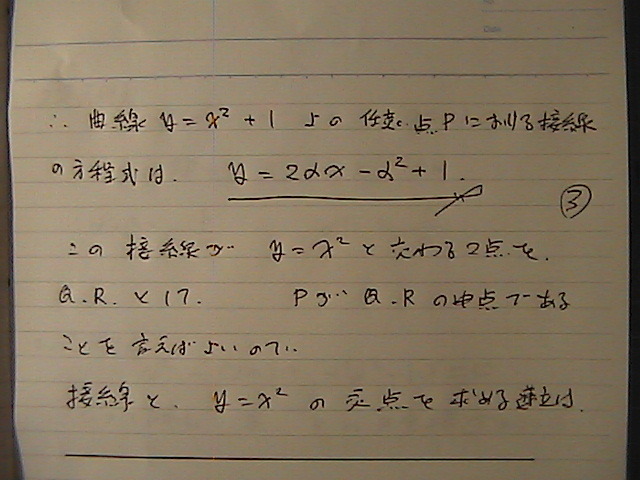 ∴ 曲線 y = x² + 1 上の 任意の点Pにおける接線
の方程式は. y = 2αx - α² + 1.
③
この 接線が y = x² と 交わる2点を.
Q.R. として. Pが Q.R の中点である
ことを 言えばよいので..
接線と. y = x² の 交点を 求める連立は.